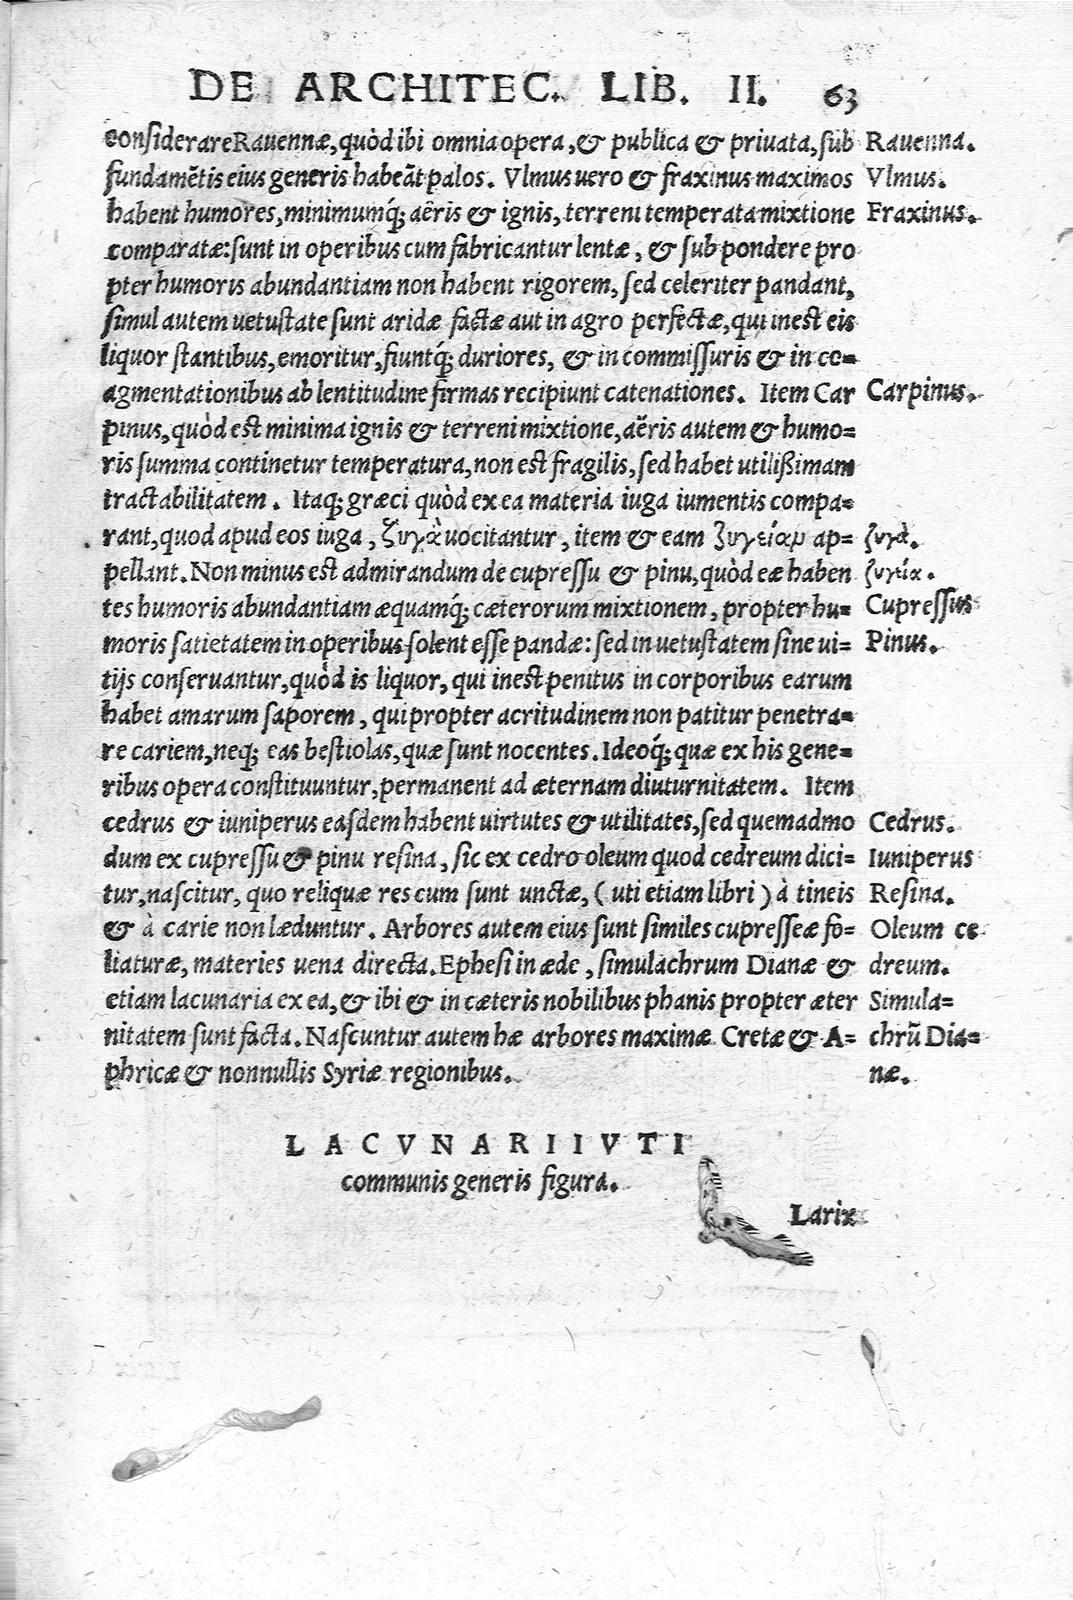 DE ARCHITEC. LIB. II. 63
considerare Ravennæ, quòd ibi omnia opera, & publica & privata, sub
Ravenna.
fundamẽtis eius generis habeãt palos. Vlmus uero & fraxinus maximos
Vlmus.
habent humores, minimumq́; aëris & ignis, terreni temperata mixtione
Fraxinus.
comparatæ: sunt in operibus cum fabricantur lentæ, & sub pondere pro
pter humoris abundantiam non habent rigorem, sed celeriter pandant,
simul autem uetustate sunt aridæ factæ aut in agro perfectæ, qui inest eis
liquor stantibus, emoritur, fiuntq́; duriores, & in commissuris & in co=
agmentationibus ab lentitudine firmas recipiunt catenationes. Item Car
Carpinus.
pinus, quòd est minima ignis & terreni mixtione, aëris autem & humo=
ris summa continetur temperatura, non est fragilis, sed habet utilißimam
tractabilitatem. Itaq; græci quòd ex ea materia iuga iumentis compa=
rant, quod apud eos iuga, ζυγὰ uocitantur, item & eam ζυγείαμ ap=
ζυγὰ.
pellant. Non minus est admirandum de cupressu & pinu, quòd eæ haben
ζυγεία.
tes humoris abundantiam æquamq́; cæterorum mixtionem, propter hu=
Cupressus
moris satietatem in operibus solent esse pandæ: sed in uetustatem sine ui=
Pinus.
tijs conseruantur, quòd is liquor, qui inest penitus in corporibus earum
habet amarum saporem, qui propter acritudinem non patitur penetra=
re cariem, neq; eas bestiolas, quæ sunt nocentes. Ideoq́; quæ ex his gene=
ribus opera constituuntur, permanent ad æternam diuturnitatem. Item
cedrus & iuniperus easdem habent uirtutes & utilitates, sed quemadmo
Cedrus.
dum ex cupressu & pinu resina, sic ex cedro oleum quod cedreum dici=
Iuniperus
tur, nascitur, quo reliquæ res cum sunt unctæ, (uti etiam libri) à tineis
Resina.
& à carie non læduntur. Arbores autem eius sunt similes cupresseæ fo=
Oleum ce
liaturæ, materies uena directa. Ephesi in æde, simulachrum Dianæ &
dreum.
etiam lacunaria ex ea, & ibi & in cæteris nobilibus phanis propter æter
Simula=
nitatem sunt facta. Nascuntur autem hæ arbores maximæ Cretæ & A=
chrũ Dia=
phricæ & nonnullis Syriæ regionibus.
næ.
LACVNARII VTI
communis generis figura.
Larix